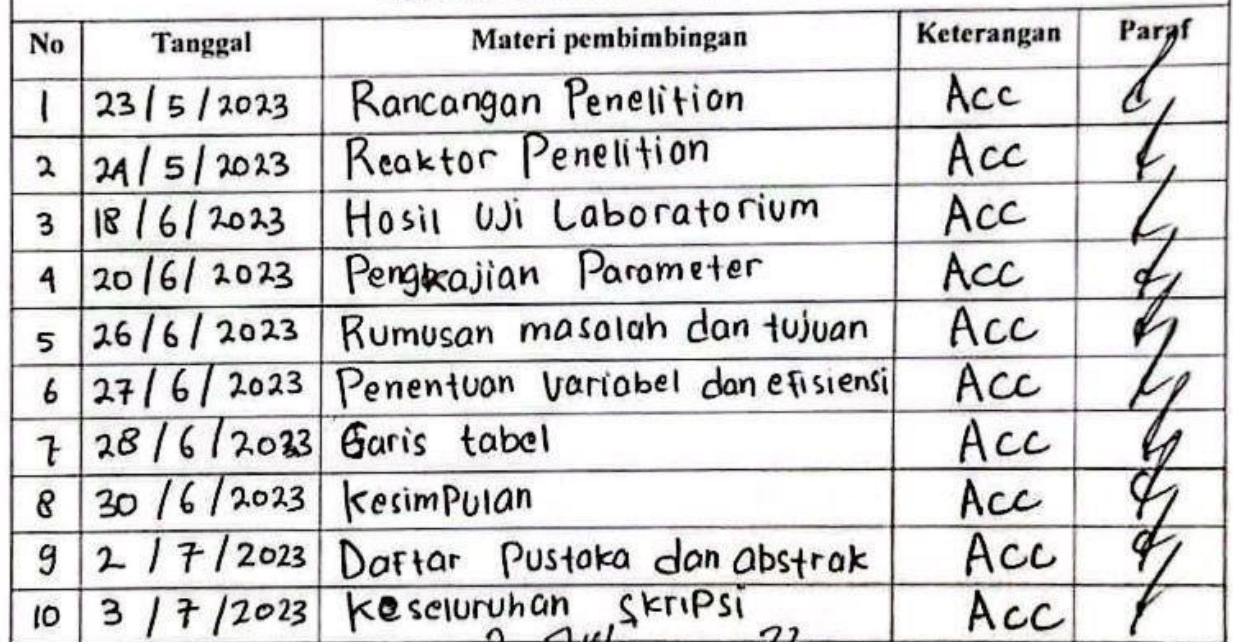 No Tanggal Materi pembimbingan Keterangan Paraf
1 23/5/2023 Rancangan Penelition Acc
2 24/5/2023 Reaktor Penelition Acc
3 18/6/2023 Hosil Uji Laboratorium Acc
4 20/6/2023 Pengkajian Parameter Acc
5 26/6/2023 Rumusan masalah dan tujuan Acc
6 27/6/2023 Penentuan Variabel dan efisiensi Acc
7 28/6/2023 Garis tabel Acc
8 30/6/2023 KesimPulan Acc
9 2/7/2023 Daftar Pustaka dan abstrak Acc
10 3/7/2023 Keseluruhan SkriPsi Acc